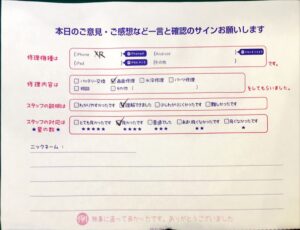 本日のご意見・ご感想など一言と確認のサインお願いします
修理機種は
iPhone XR
Android
iPad
その他
です。
修理内容は
バッテリー交換 ☑画面修理 □水没修理 □パーツ修理
□その他
をしてもらいました。
スタッフの説明は
□わかりやすかったです ☑理解できました □少しわかりにくかったです □難しかったです
スタッフの対応は
□とても良かったです ☑良かったです □普通でした □あまり良くなかったです □良くなかったです
★星の数★
★★★★★ ★★★★ ★★★ ★★ ★
ニックネーム：
無事に直って良かったです。ありがとうございました